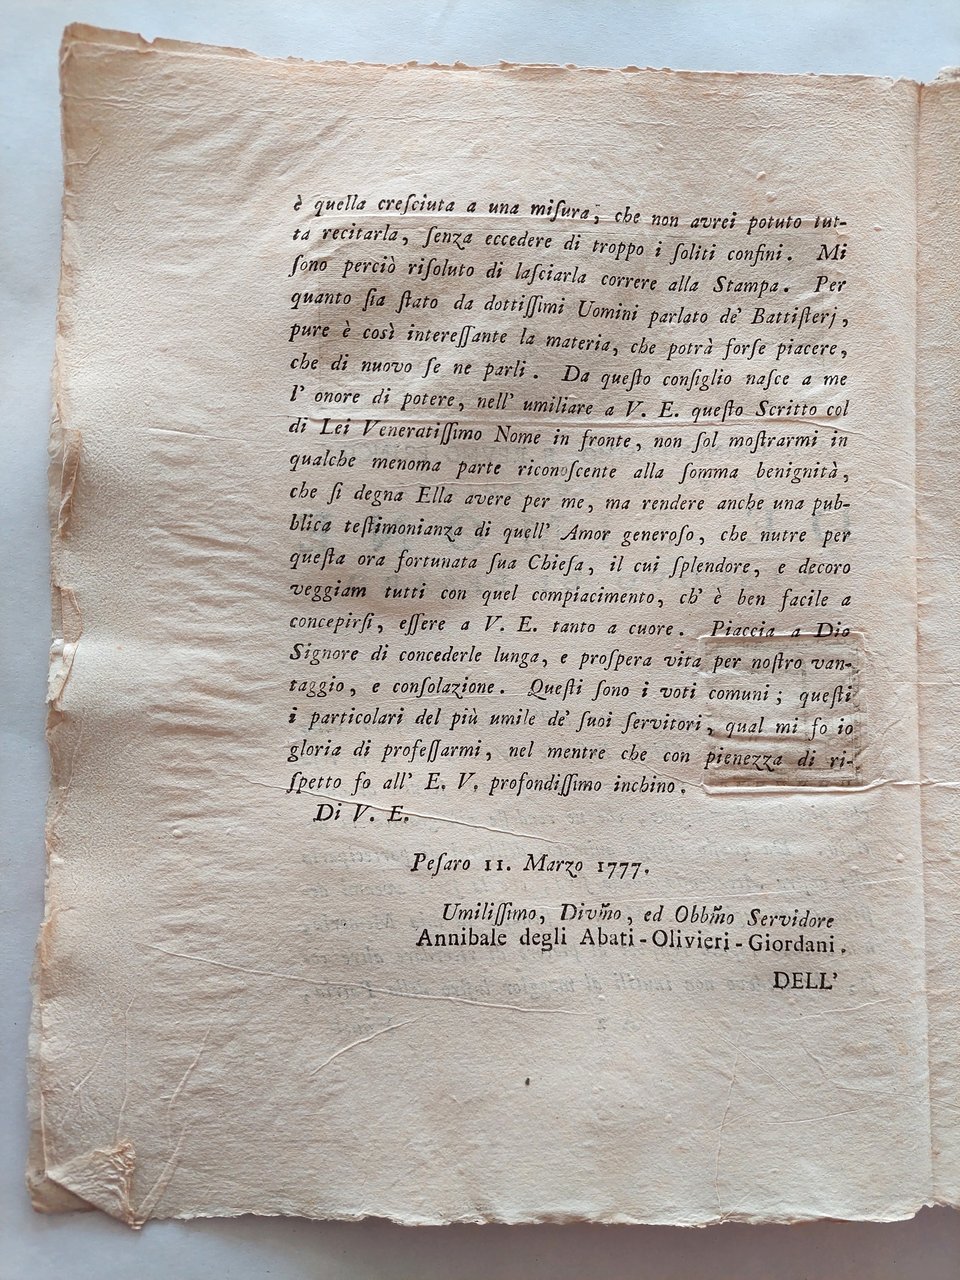 è quella creſciuta a una miſura, che non avrei potuto tut-
ta recitarla, ſenza eccedere di troppo i ſoliti confini. Mi
ſono perciò riſoluto di laſciarla correre alla Stampa. Per
quanto ſia ſtato da dottiſſimi Uomini parlato de' Battiſterj,
pure è così intereſſante la materia, che potrà forſe piacere,
che di nuovo ſe ne parli. Da queſto conſiglio naſce a me
l' onore di potere, nell' umiliare a V. E. queſto Scritto col
di Lei Veneratiſſimo Nome in fronte, non ſol moſtrarmi in
qualche menoma parte riconoſcente alla ſomma benignità,
che ſi degna Ella avere per me, ma rendere anche una pub-
blica teſtimonianza di quell' Amor generoſo, che nutre per
queſta ora fortunata ſua Chieſa, il cui ſplendore, e decoro
veggiam tutti con quel compiacimento, ch' è ben facile a
concepirſi, eſſere a V. E. tanto a cuore. Piaccia a Dio
Signore di concederle lunga, e proſpera vita per noſtro van-
taggio, e conſolazione. Queſti ſono i voti comuni; queſti
i particolari del più umile de' ſuoi ſervitori, qual mi fo io
gloria di profeſſarmi, nel mentre che con pienezza di ri-
ſpetto fo all' E. V. profondiſſimo inchino.
Di V. E.
Peſaro 11. Marzo 1777.
Umiliſſimo, Divm̃o, ed Obbm̃o Servidore
Annibale degli Abati-Olivieri-Giordani.
DELL'